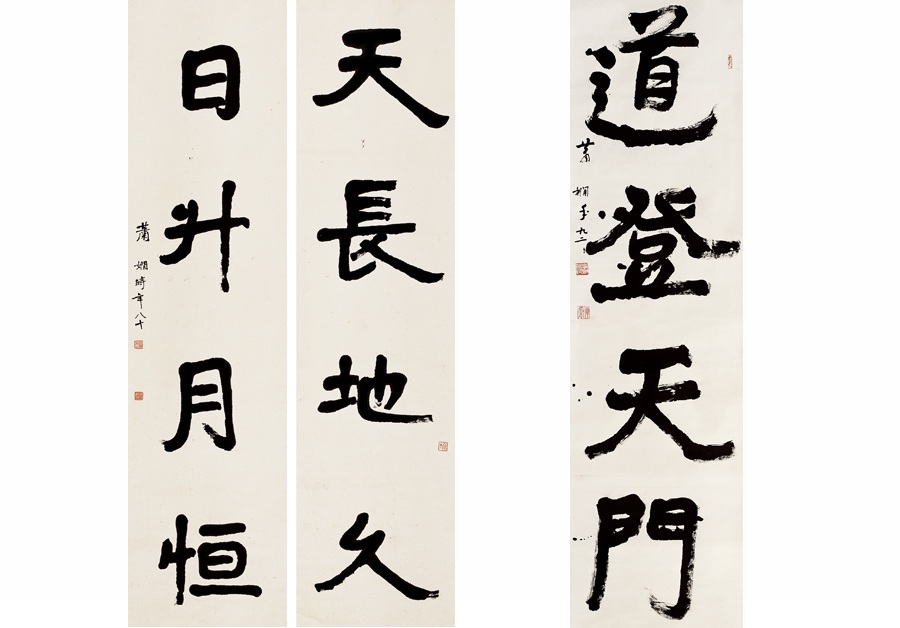 道登天門
蕭嫻年九二
天長地久
日升月恒
蕭嫻時年八十